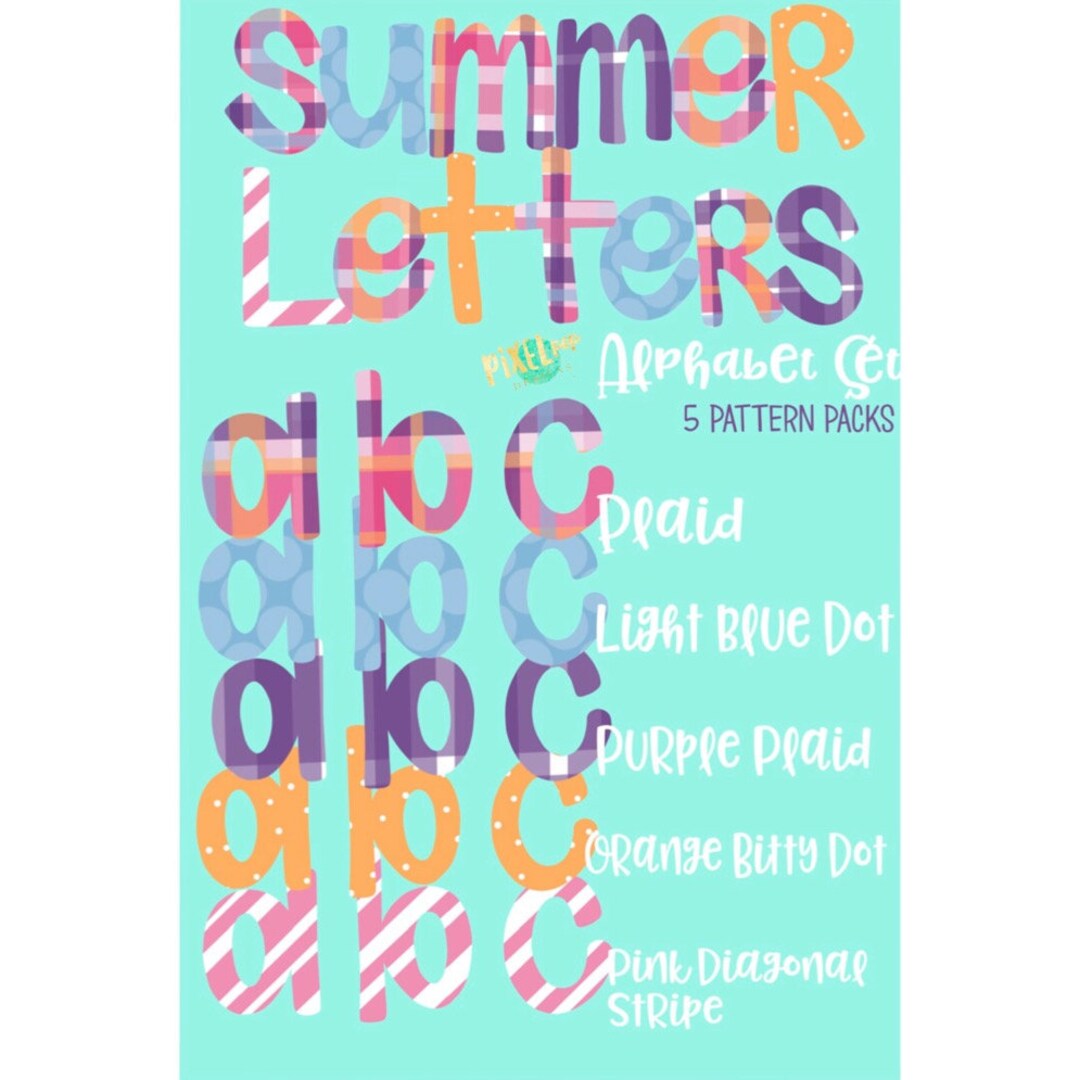 Summer
Letters
PixelPop
Alphabet Set
5 PATTERN PACKS
a b c
Plaid
a b c
Light Blue Dot
a b c
Purple Plaid
a b c
Orange Bitty Dot
a b c
Pink Diagonal
Stripe